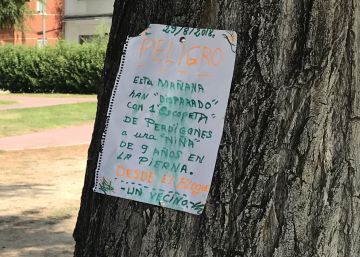 29/8/2018
PELIGRO
Esta MAÑANA
HAN "DISPARADO"
CON 1 ESCOPETA
DE PERDIGONES
a una "NIÑA"
DE 9 AÑOS EN
LA PIERNA.
DESDE El Bloque
-UN VECINO-